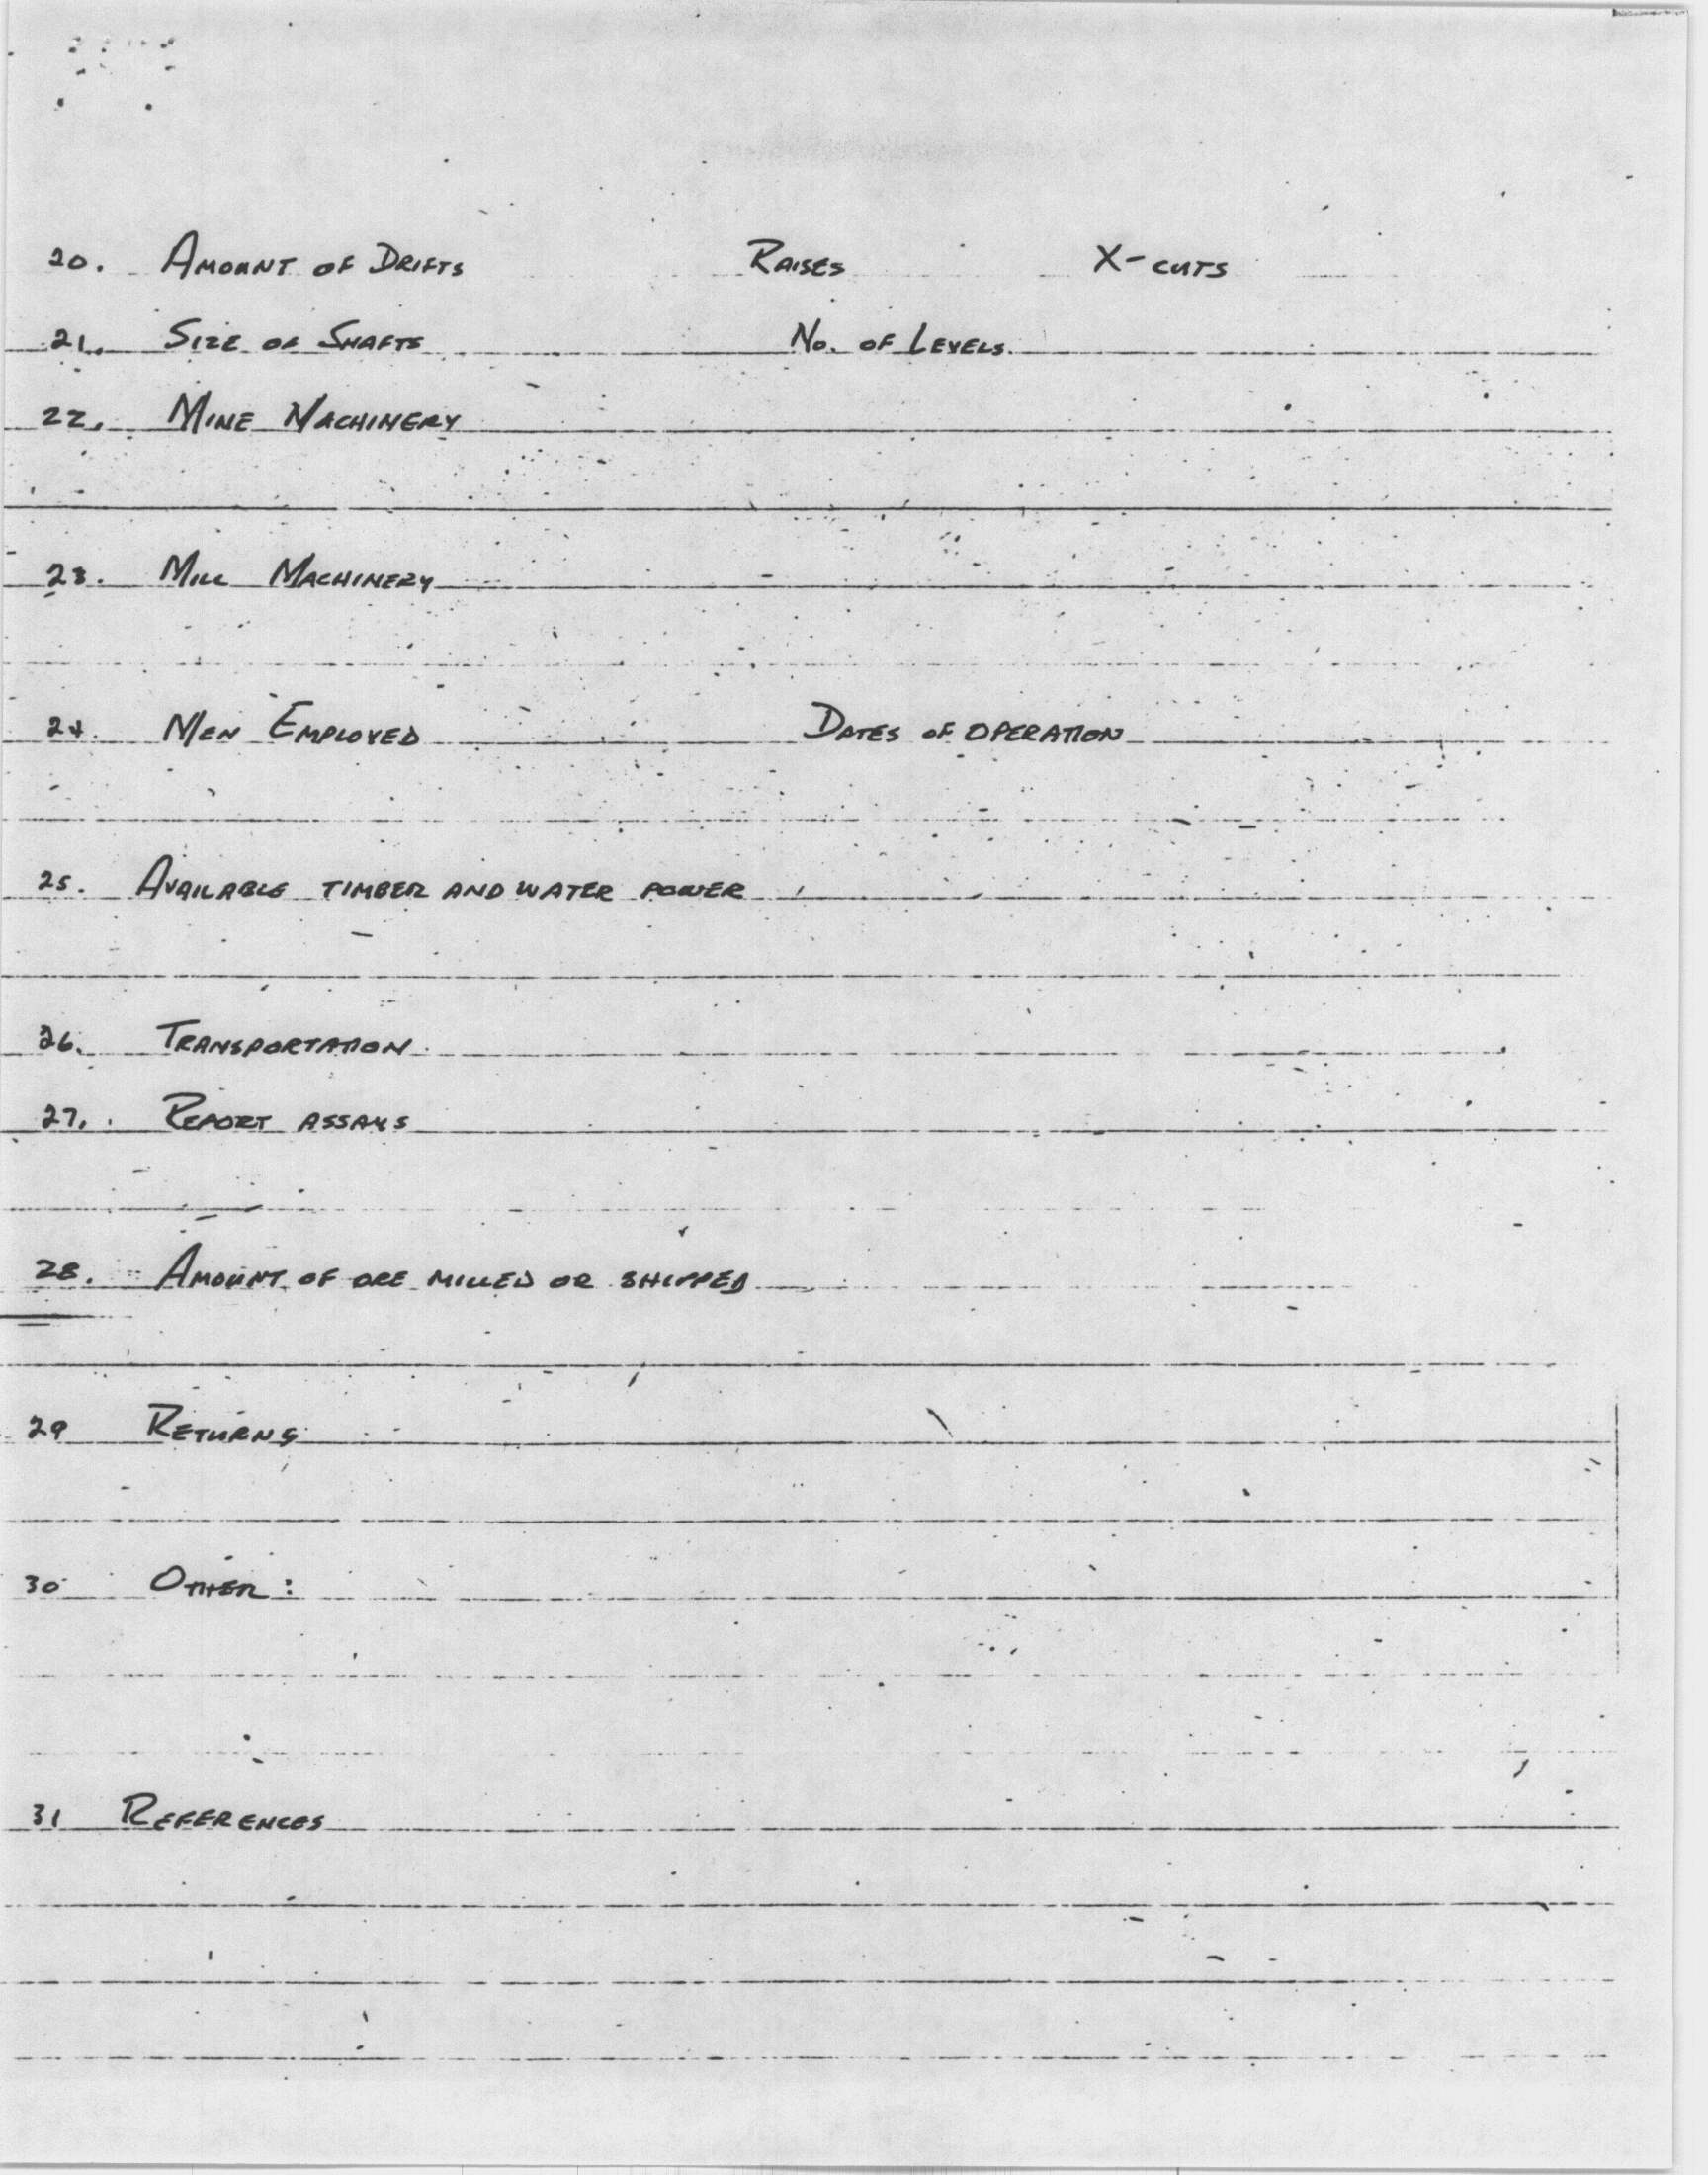 20. AMOUNT OF DRIFTS RAISES X-CUTS
21. SIZE OF SHAFTS NO. OF LEVELS
22. MINE MACHINERY
23. MILL MACHINERY
24. MEN EMPLOYED DATES OF OPERATION
25. AVAILABLE TIMBER AND WATER POWER
26. TRANSPORTATION
27. REPORT ASSAYS
28. AMOUNT OF ORE MILLED OR SHIPPED
29 RETURNS
30 OTHER:
31 REFERENCES